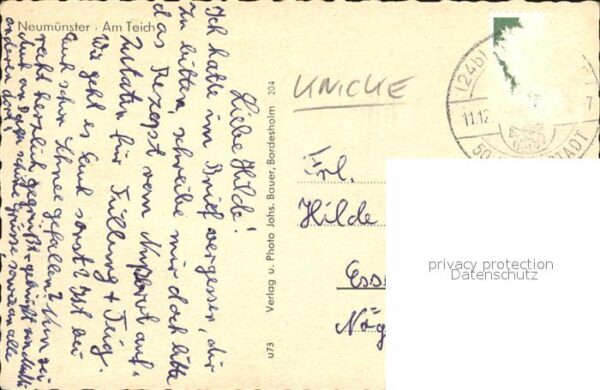 Neumünster · Am Teich
Liebe Hilde!
Ich hatte im Brief vergessen, dir
zu bitten, schreibe mir doch bitte
das Rezept vom Nußbrot auf.
Zutaten für Füllung + Teig.
Wie geht es Euch sonst? Ist bei
Euch schon Schnee gefallen? Nun sei
recht herzlich gegrüßt + geküßt von
Papa schöne Grüsse sowie an alle
andere dort!
Verlag u. Photo Johs. Bauer, Bordesholm 204
u73
UNICKE
(24b)
11.12.
7
50
STADT
Frl.
Hilde
Ess
Näg
privacy protection
Datenschutz